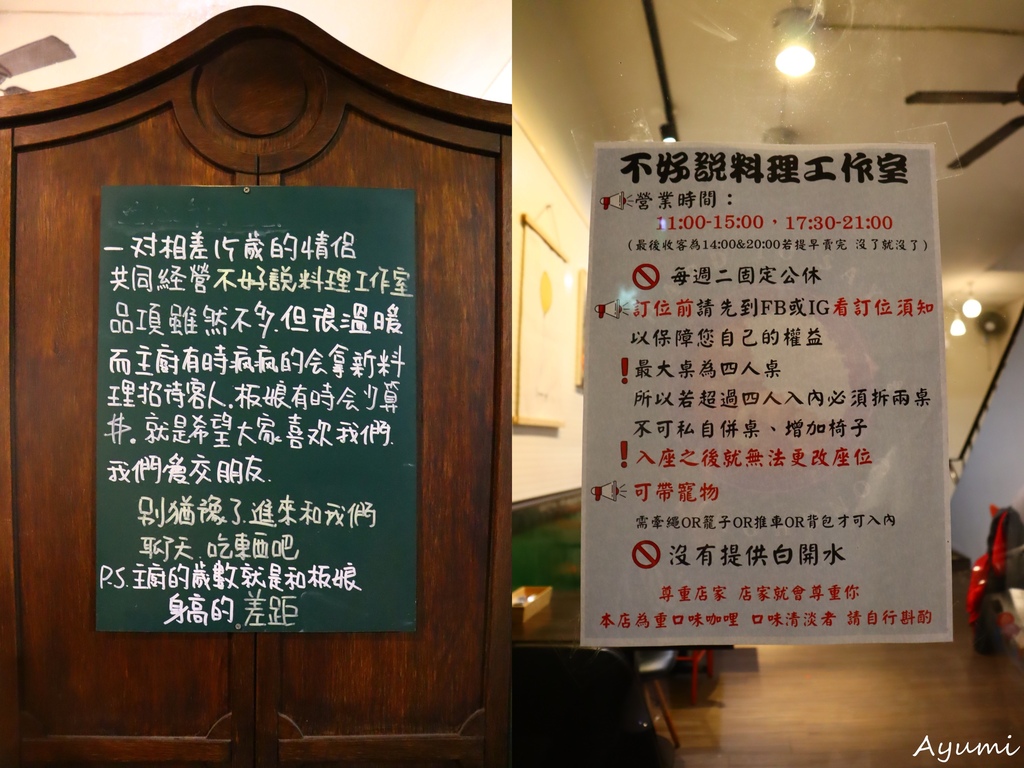 一对相差15歲的情侶
共同經營不好說料理工作室
品項雖然不多.但很溫暖
而主廚有時瘋瘋的会拿新料
理招待客人.板娘有時会少算
井.就是希望大家喜欢我們.
我們愛交朋友.
別猶豫了.進來和我們
聊天.吃東西吧
P.S.主廚的歲數就是和板娘
身高的.差距
不好說料理工作室
營業時間：
11:00-15:00，17:30-21:00
（最後收客為14:00&20:00若提早賣完 沒了就沒了）
每週二固定公休
訂位前請先到FB或IG看訂位須知
以保障您自己的權益
最大桌為四人桌
所以若超過四人入內必須拆兩桌
不可私自併桌、增加椅子
入座之後就無法更改座位
可帶寵物
需牽繩OR籠子OR推車OR背包才可入內
沒有提供白開水
尊重店家 店家就會尊重你
本店為重口味咖哩 口味清淡者 請自行斟酌
Ayumi